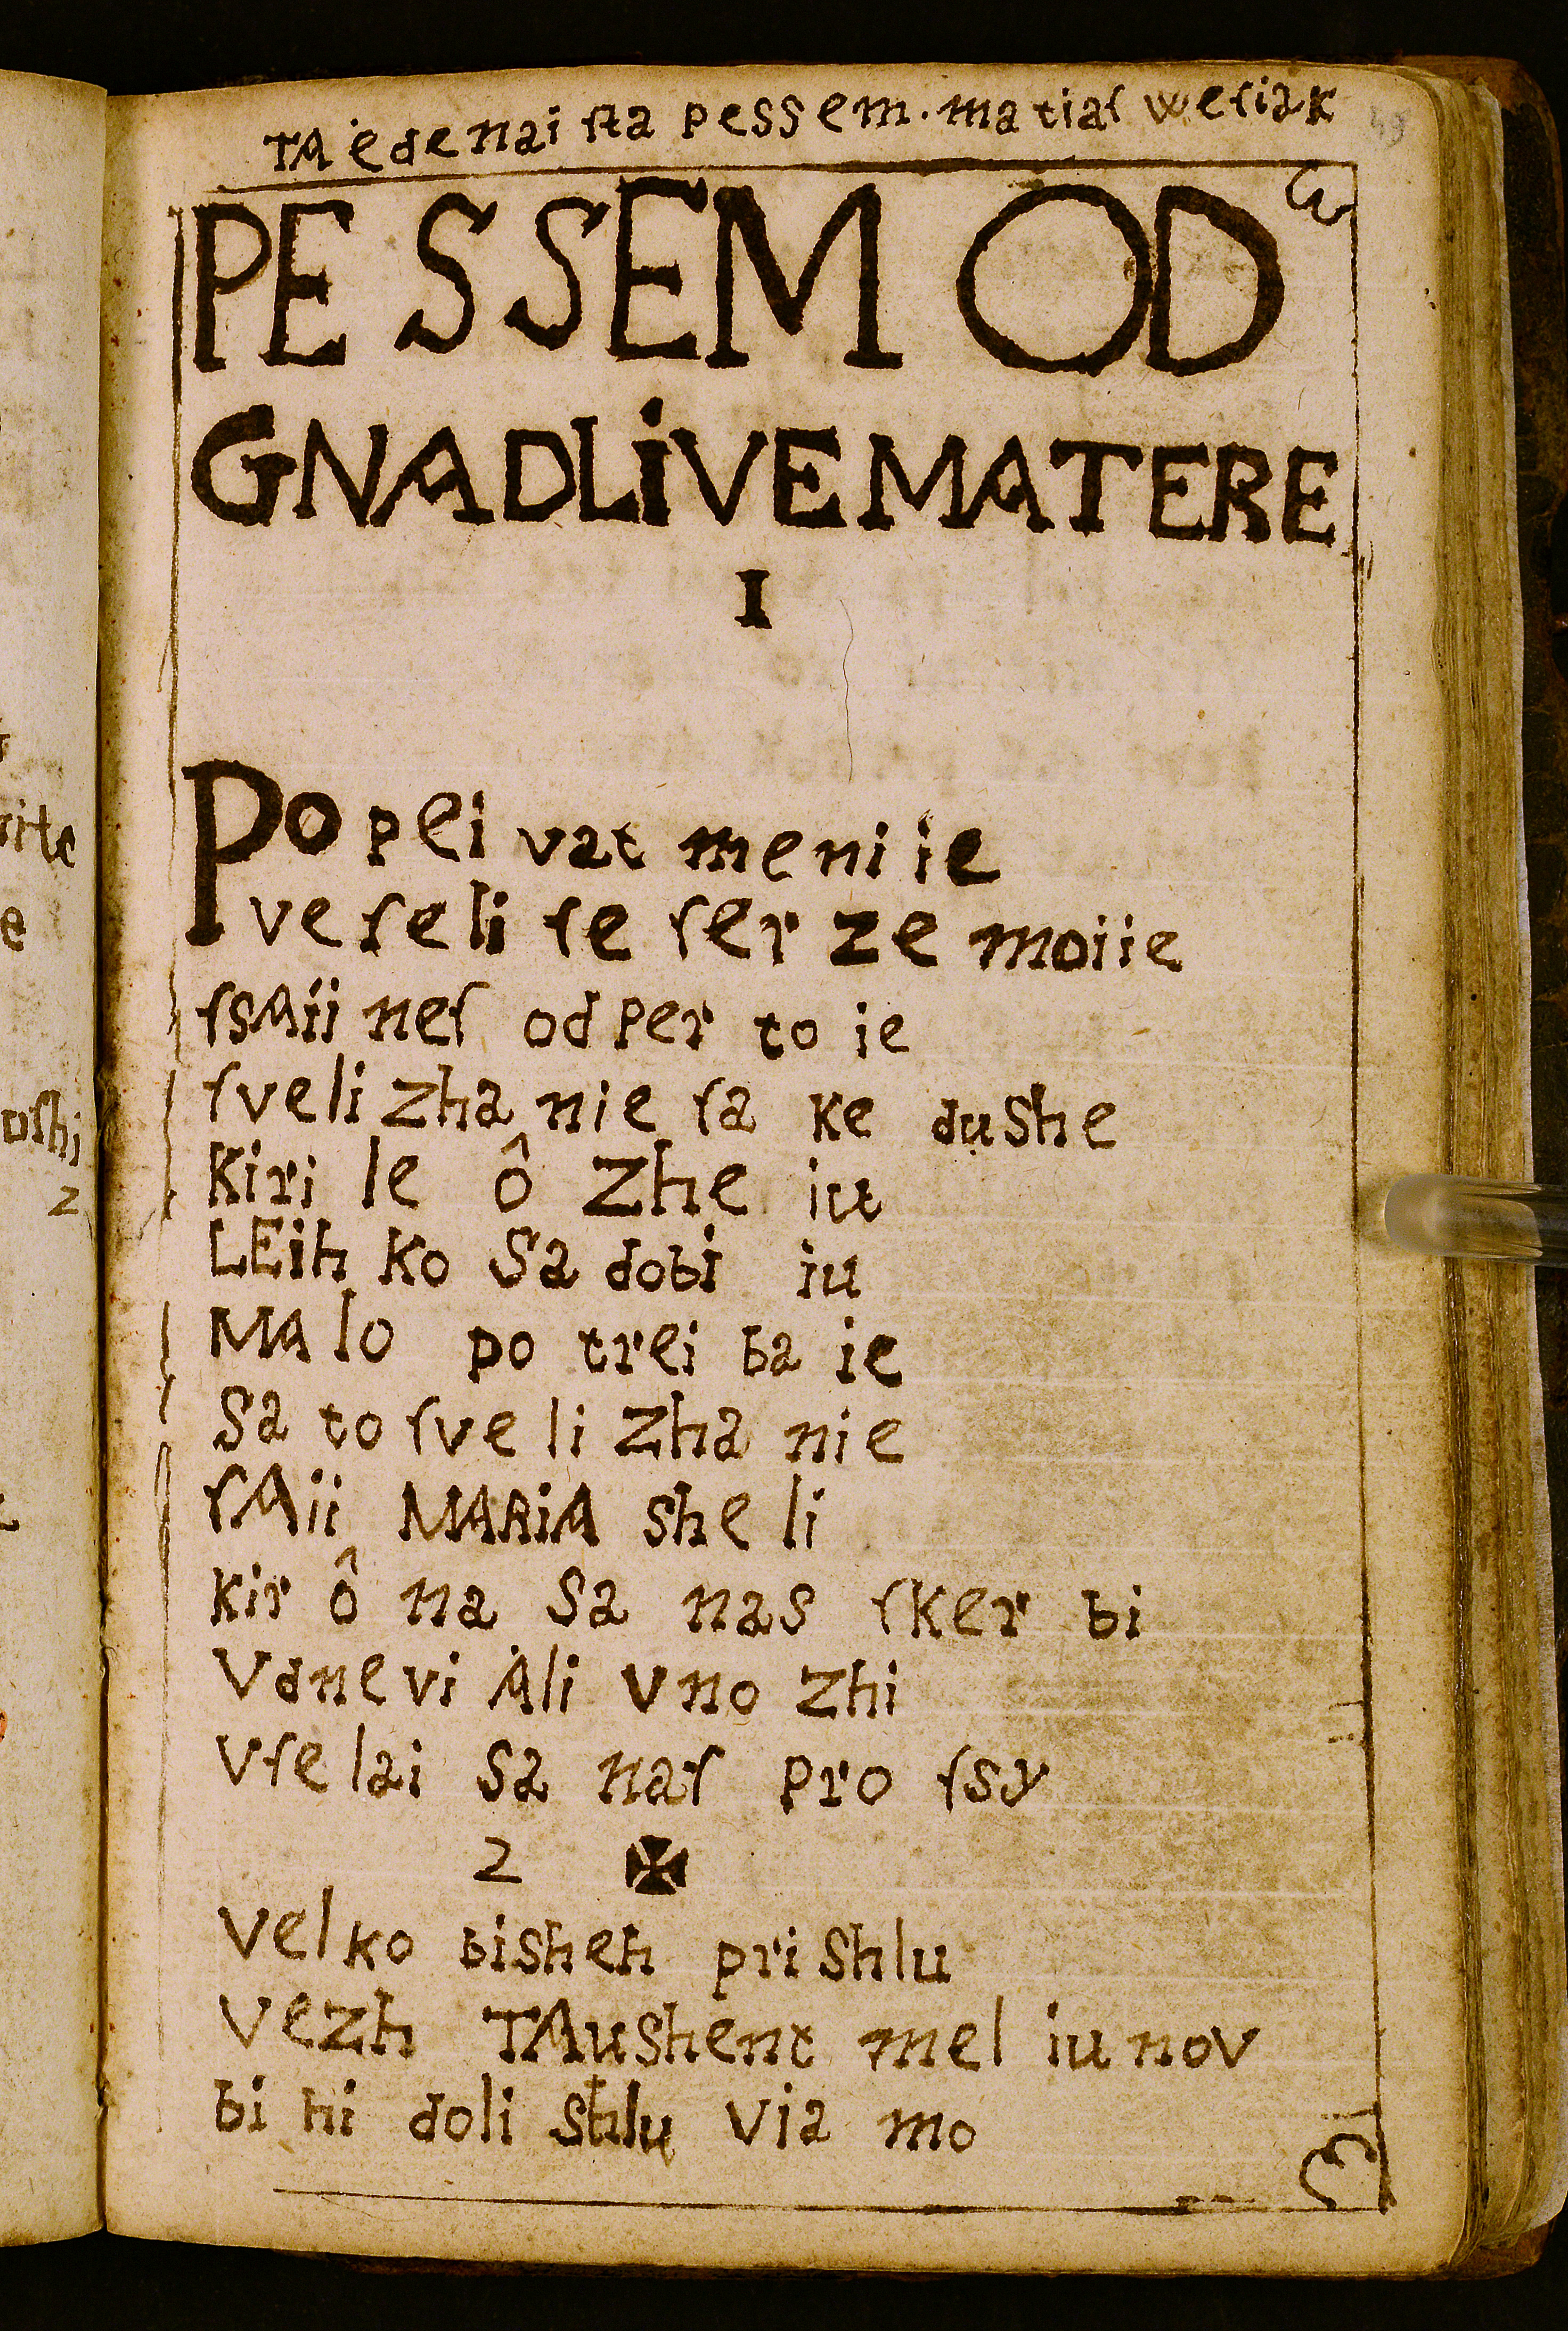 TA ëdenaiſta pessem. matiaſ weſiak
PESSEM OD
GNADLiVE MATERE
I
Po pei vat meni ie
veſeli ſe ſer ze moiie
ſsAii neſ od per to ie
ſveli zha nie ſa ke dushe
Kiri le ô zhe iu
LEih ko Sa dobi iu
MA lo po trei ba ie
Sa to ſve li zha nie
ſAii MARiA she li
kir ô na Sa nas ſker bi
Vdne vi Ali vno zhi
Vſe lai Sa naſ pro ſsy
2 ✠
Vel ko bisheh pri Shlu
Vezh TAushent mel iu nov
bi hi doli Shlu Via mo